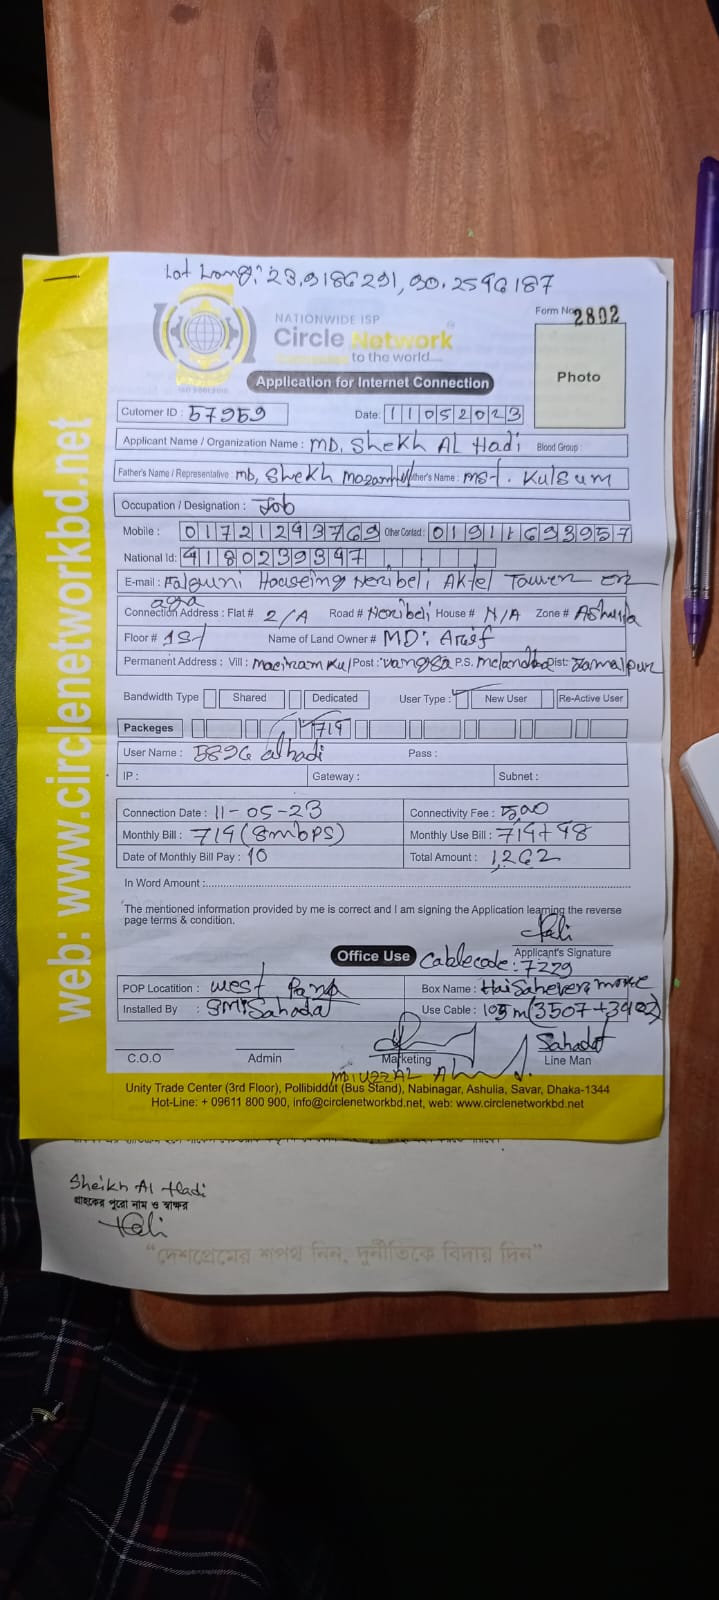 Lat Long: 23.9186291, 90.2596187
NATIONWIDE ISP
Circle Network
to the world....
Form No. 2802
Photo
Application for Internet Connection
Cutomer ID : 57959 Date: 11052023
Applicant Name / Organization Name : MD. Shekh Al Hadi Blood Group :
Father's Name / Representative : MD, Shekh Mother's Name : Mst. Kulsum
Occupation / Designation : Job
Mobile : 01721293769 Other Contact : 01911693957
National Id: 4180239397
E-mail : Falguni Houseing Neribeli Aktel Tower
Connection Address : Flat # 2/A Road # Neribeli House # N/A Zone # Ashulia
Floor # 1st Name of Land Owner # MD: Arif
Permanent Address : Vill : Post : P.S. Melandha Dist: Jamalpur
Bandwidth Type Shared Dedicated User Type : New User Re-Active User
Packeges 719
User Name : 5896 alhadi Pass :
IP : Gateway : Subnet :
Connection Date : 11-05-23 Connectivity Fee : 500
Monthly Bill : 719 (8mbps) Monthly Use Bill : 719+48
Date of Monthly Bill Pay : 10 Total Amount : 1,262
In Word Amount :
The mentioned information provided by me is correct and I am signing the Application learning the reverse
page terms & condition.
Applicant's Signature
Office Use Cablecode: 7229
POP Locatition : West Para Box Name :
Installed By : Sahada Use Cable : 105m (3507+3402)
Sahadat
C.O.O Admin Marketing Line Man
MD: UZZAL
Unity Trade Center (3rd Floor), Pollibiddut (Bus Stand), Nabinagar, Ashulia, Savar, Dhaka-1344
Hot-Line: + 09611 800 900, info@circlenetworkbd.net, web: www.circlenetworkbd.net
web: www.circlenetworkbd.net
Sheikh Al Hadi
গ্রাহকের পুরো নাম ও স্বাক্ষর
"দেশপ্রেমের শপথ নিন, দুর্নীতিকে বিদায় দিন"